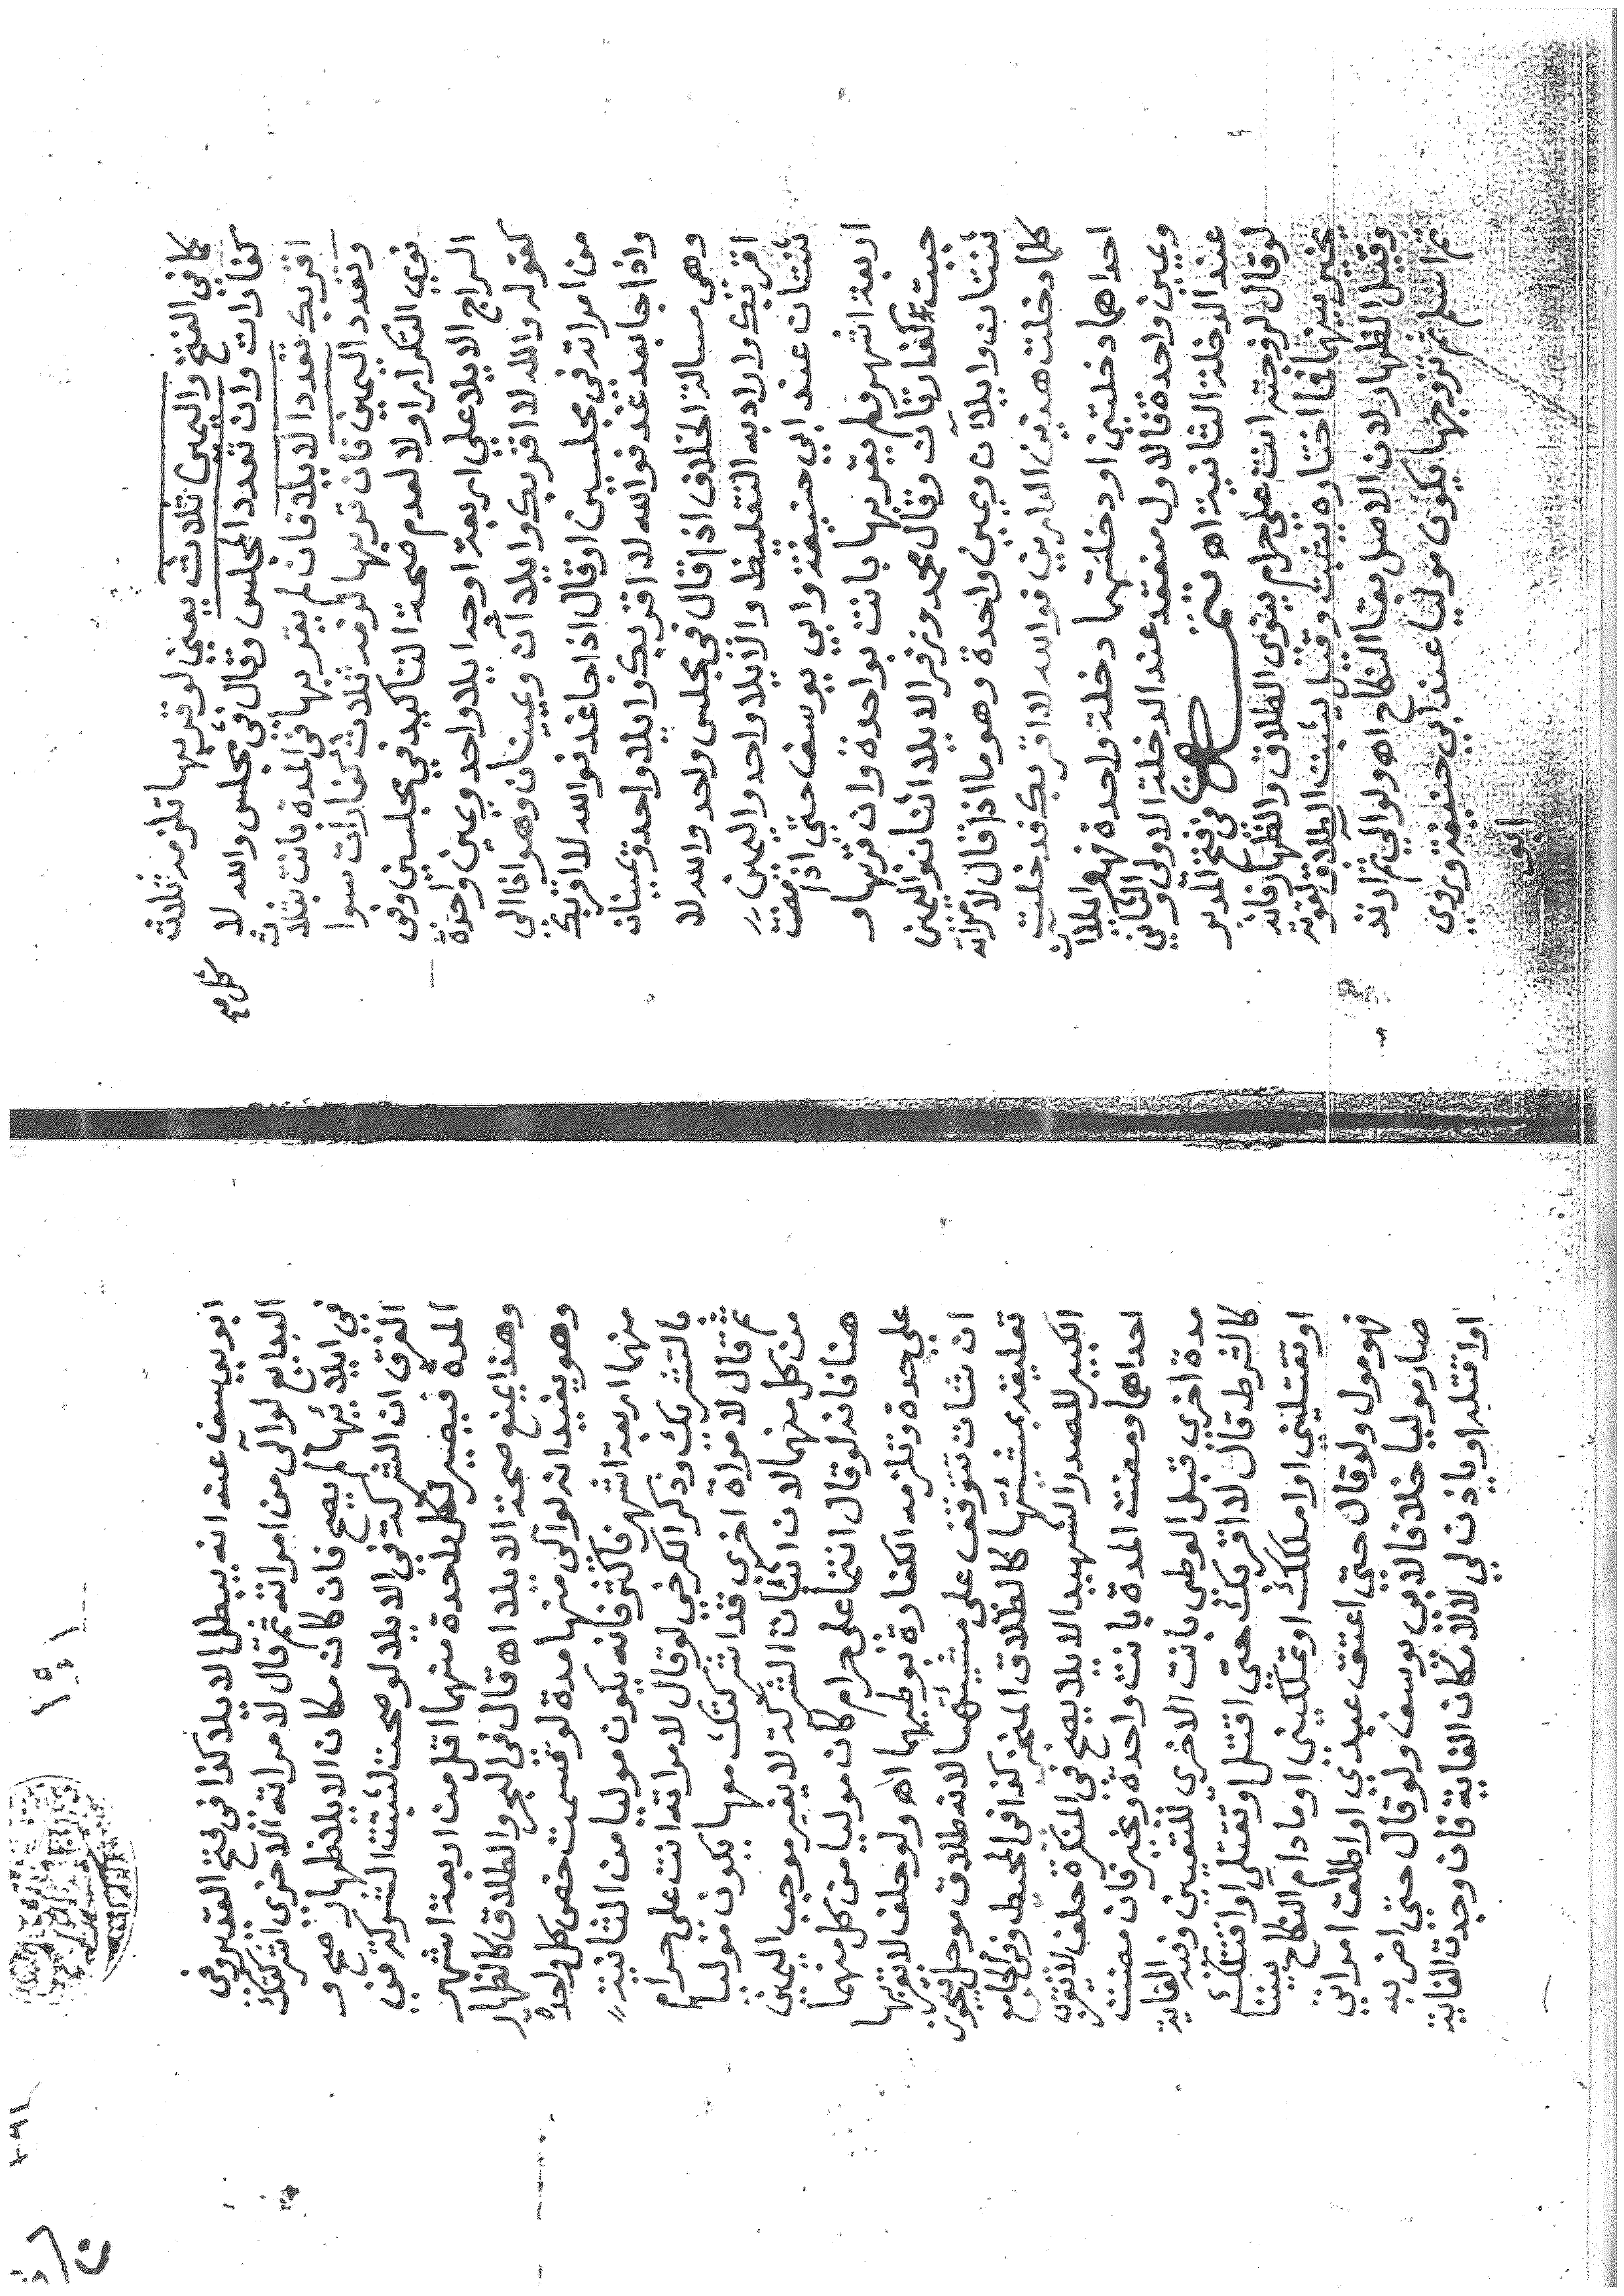 كما في الفتح واليمين ثلاث يعني لو قربها تلزمه ثلاث
كفارات وان تعدد المجلس وقال في كل مجلس والله لا
اقربك تعدد الايلا فان لم يقربها في المدة بانت بثلاث
وتعدد اليمين فان قربها لزمه ثلاث كفارات سوا
نوي التكرار اولا لعدم صحة التاكيد في مجلسين وفي
السراج الايلا علي اربعة اوجه ايلا واحد ويمين واحدة
كقوله والله لا اقربك وايلا ان ويمينان وهو اذا الي
من امراته في مجلسين او قال اذا جا غد فوالله لا اقربك
واذا جا بعد غد فوالله لا اقربك وايلا واحد ويمينان
وهي مسالة الخلاف اذا قال في مجلس واحد والله لا
اقربك واراد به التغليظ والايلا واحد واليمين
ثنتان عند ابي حنيفة وابي يوسف حتي اذا مضت
اربعة اشهر ولم يقربها بانت بواحدة وان قربها و
جبت كفارتان وقال محمد وزفر الايلا اثنان واليمين
ثنتان وايلان ويمين واحدة وهو ما اذا قال لامراته
كلما دخلت هذين الدارين فوالله لا اقربك فدخلت
احداهما دخلتين او دخلتهما دخلة واحدة فهو ايلا ان
ويمين واحدة فالاول منعقد عند الدخلة الاولي والثاني
عند الدخلة الثانية اه تتمة في فتح القدير
لو قال لزوجته انت علي حرام ينوي الطلاق والظهار فانه
يخير بينهما فما اختاره يثبت وقيل يثبت الطلاق لقوته
وقيل الظهار لان الاصل بقا النكاح اه ولو الي ثم ارتد
ثم اسلم ثم تزوجها يكون موليا عند ابي حنيفة وروي
ابو
ابو يوسف عنه انه يبطل الايلا كذا في فتح القدير وفي
البدايع لو آلي من امراته ثم قال لامراته الاخري اشركتك
في ايلائها لم يصح فان كان مكان الايلا ظهار صح و
الفرق ان الشركة في الايلا لو صحت لثبتت الشركة في
المدة فيصير لكل واحدة منهما اقل من اربعة اشهر
وهذا يمنع صحة الايلا اه قال في البحر والطلاق كالظهار
وهو يفيد انه لو الي منها مدة لو قسمت خص كل واحدة
منهما اربعة اشهر فاكثر فانه يكون موليا من الثانية
بالتشريك وذكر الكرخي لو قال لامراته انت علي حرام
ثم قال لامراة اخري قد اشركتك معها يكون موليا
من كل منهما لان اثبات الشركة لا يغير موجب اليمين
هنا فانه لو قال انتما علي حرام كان موليا من كل منهما
علي حدة وتلزمه الكفارة بوطيهما اه ولو حلف لا يقربها
ان شات توقف علي مشيئتها لانه طلاق موجل فيجوز
تعليقه بمشيئتها كالطلاق المنجز كذا في المحيط وفي الجامع
الكبير للصدر الشهيد الايلا يصح في المنكرة حلف لا يقرب
احداهما ومضت المدة بانت واحدة ويخير فان مضت
مدة اخري قبل الوطي بانت الاخري للتعيين وفيه الغاية
كالشرط قال لا اقربك حتي اقتل او تقتلي او اقتلك
او تقتليني او املكك او تملكيني او ما دام النكاح بيننا
فهو مول ولو قال حتي اعتق عبدي او اطلق امراتي
صار موليا خلافا لابي يوسف ولو قال حتي اضربه
او اقتله او ياذن لي لا لامكان الغاية فان وجدت الغاية